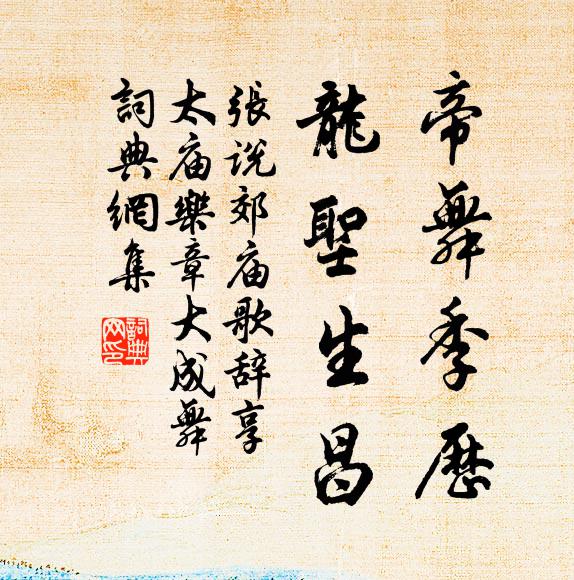 帝舞季歷
龍聖生昌
張说郊庙歌辞享
太庙樂章大成舞
詞典網集
詞典網印